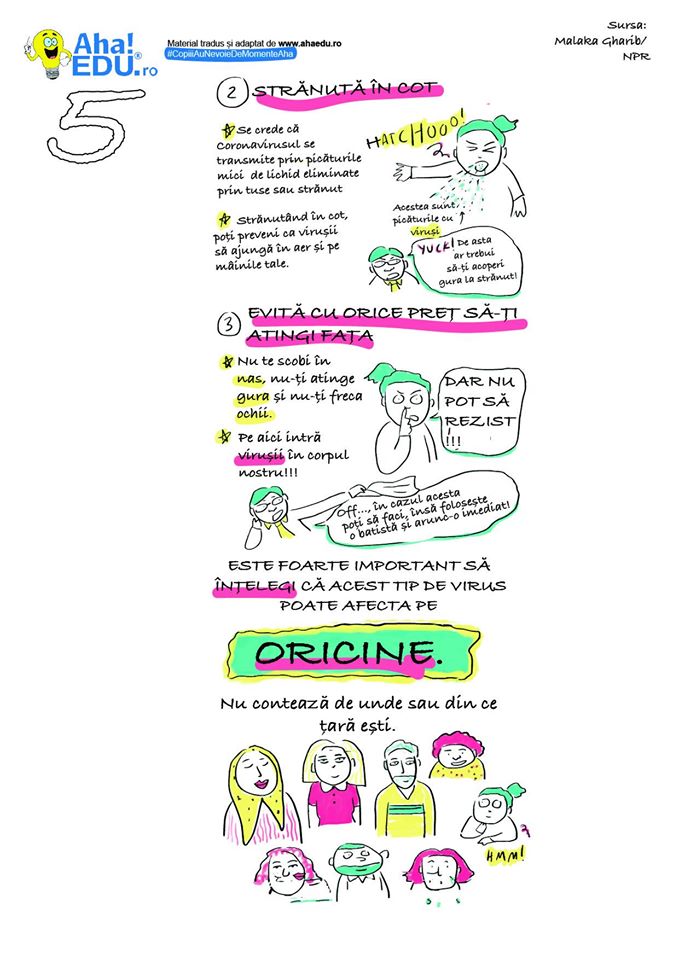 Aha!
EDU.ro
Material tradus și adaptat de www.ahaedu.ro
#CopiiiAuNevoieDeMomenteAha
Sursa:
Malaka Gharib/
NPR
5
2 STRĂNUTĂ ÎN COT
Se crede că
Coronavirusul se
transmite prin picăturile
mici de lichid eliminate
prin tuse sau strănut
HATCHOOO!
Acestea sunt
picăturile cu
viruși
Strănutând în cot,
poți preveni ca virușii
să ajungă în aer și pe
mâinile tale.
YUCK! De asta
ar trebui
să-ți acoperi
gura la strănut!
3 EVITĂ CU ORICE PREȚ SĂ-ȚI
ATINGI FAȚA
Nu te scobi în
nas, nu-ți atinge
gura și nu-ți freca
ochii.
DAR NU
POT SĂ
REZIST
!!!
Pe aici intră
virușii în corpul
nostru!!!
Off..., în cazul acesta
poți să faci, însă folosește
o batistă și arunc-o imediat!
ESTE FOARTE IMPORTANT SĂ
ÎNȚELEGI CĂ ACEST TIP DE VIRUS
POATE AFECTA PE
ORICINE.
Nu contează de unde sau din ce
țară ești.
HMM!